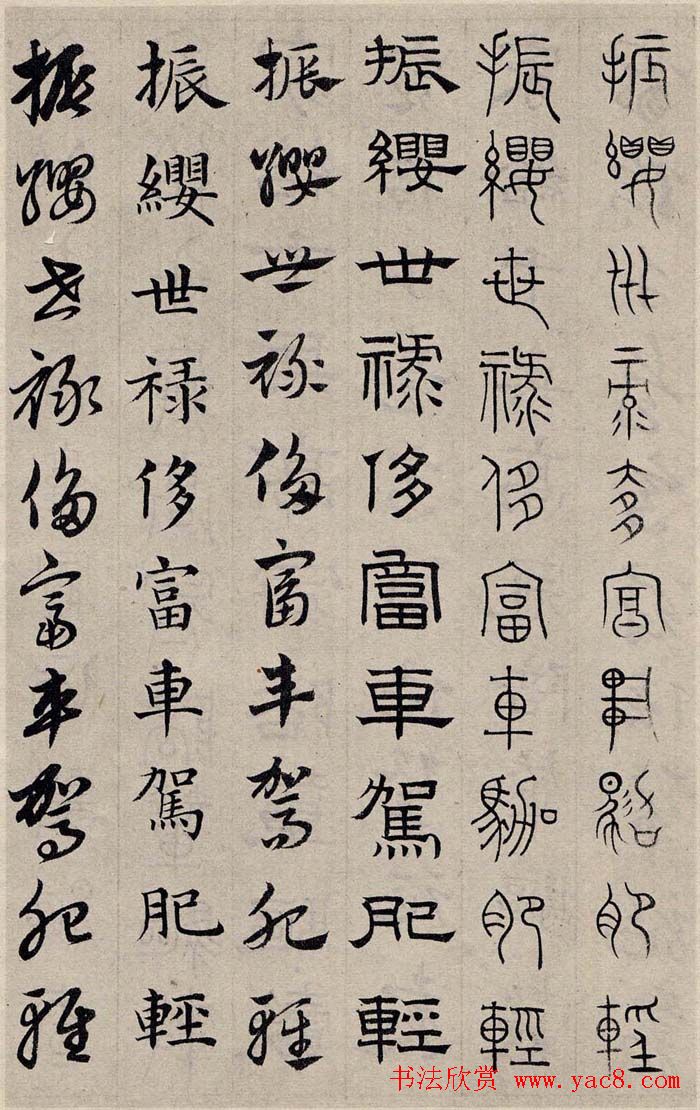 振纓世禄侈富車駕肥輕
振纓世禄侈富車駕肥輕
振纓世禄侈富車駕肥輕
振纓世禄侈富車駕肥輕
振纓世禄侈富車駕肥輕
振纓世禄侈富車駕肥輕
书法欣赏 www.yac8.com